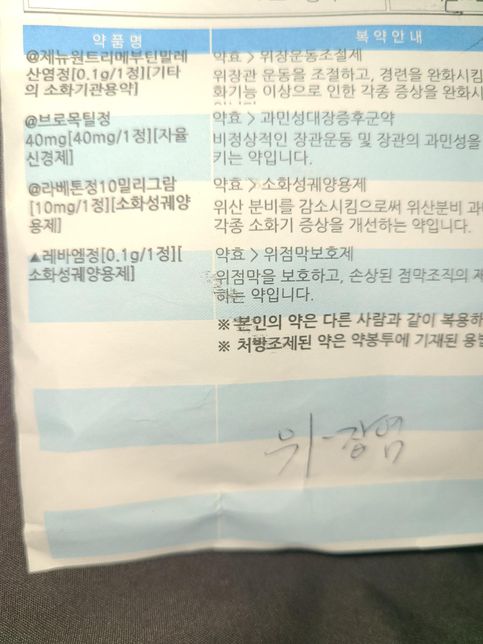 약 품 명
복 약 안 내
@제뉴원트리메부틴말레
산염정[0.1g/1정][기타
의 소화기관용약]
약효 > 위장운동조절제
위장관 운동을 조절하고, 경련을 완화시킴
화기능 이상으로 인한 각종 증상을 완화시
입니다.
@브로목틸정
40mg[40mg/1정][자율
신경제]
약효 > 과민성대장증후군약
비정상적인 장관운동 및 장관의 과민성을
키는 약입니다.
@라베톤정10밀리그람
[10mg/1정][소화성궤양
용제]
약효 > 소화성궤양용제
위산 분비를 감소시킴으로써 위산분비 과
각종 소화기 증상을 개선하는 약입니다.
▲레바엠정[0.1g/1정][
소화성궤양용제]
약효 > 위점막보호제
위점막을 보호하고, 손상된 점막조직의 재
하는 약입니다.
※ 본인의 약은 다른 사람과 같이 복용하
※ 처방조제된 약은 약봉투에 기재된 용법
위-장염